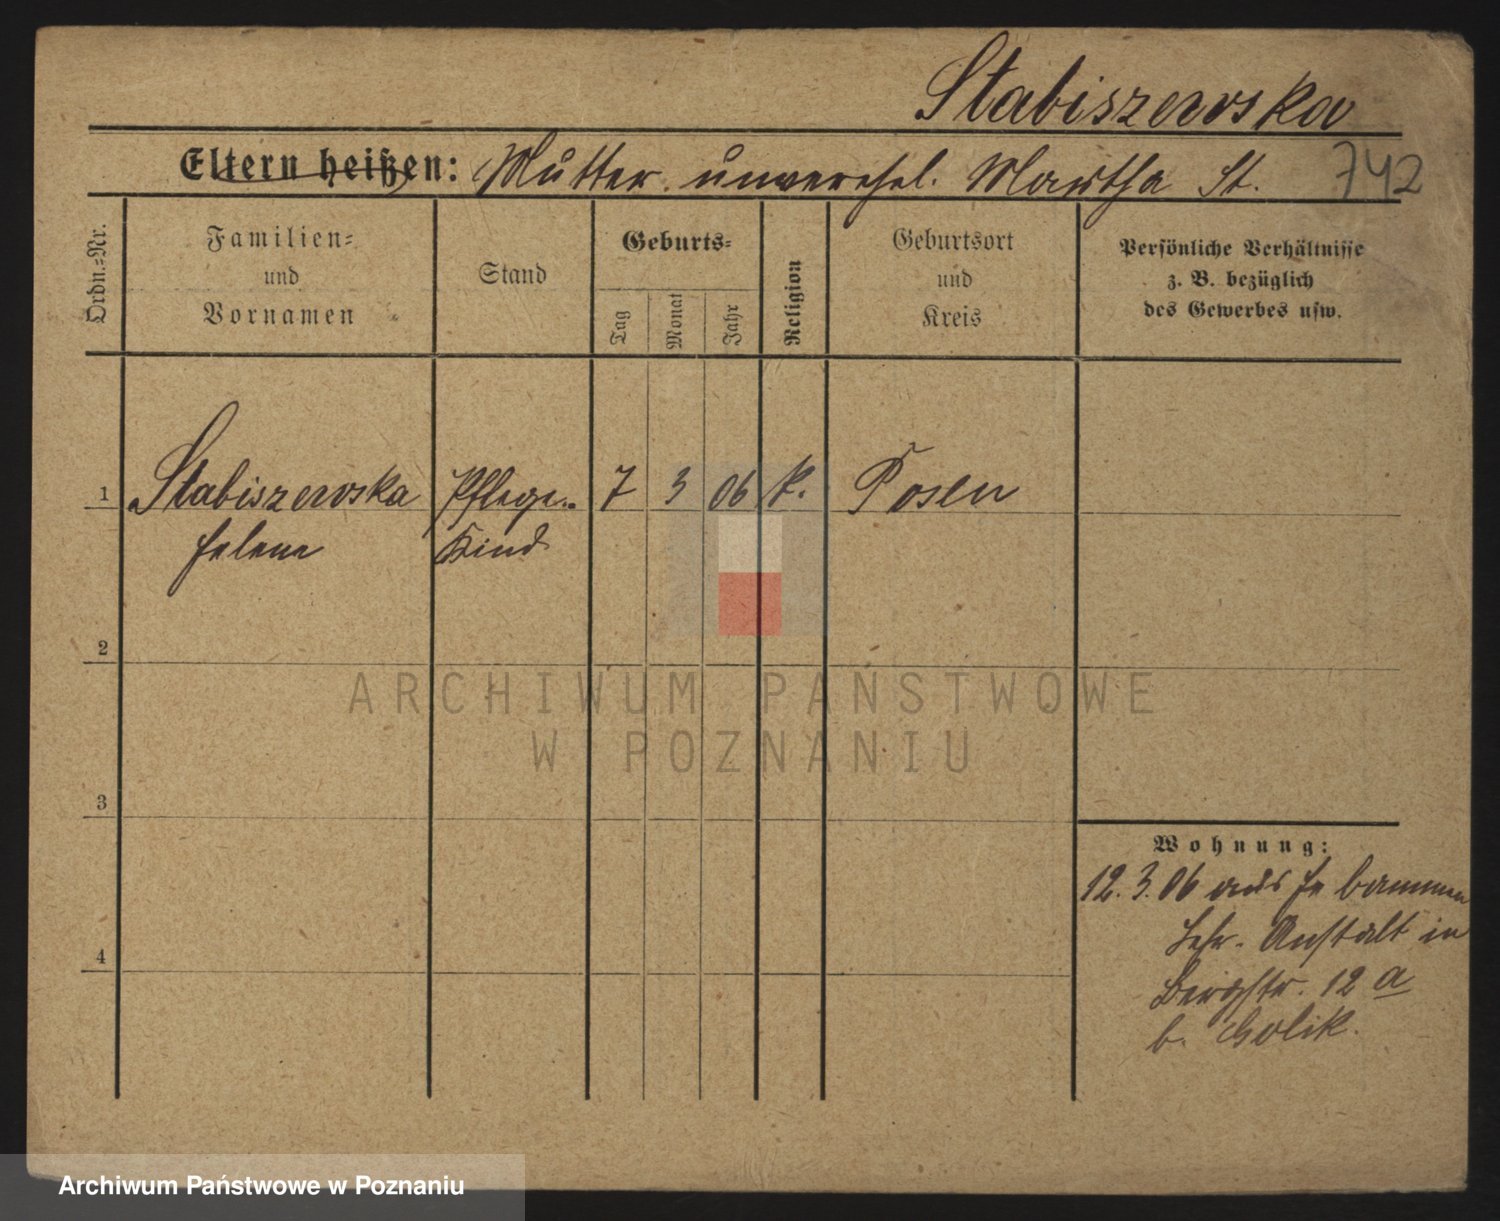 Stabiszewska
Eltern heißen: Mutter unverehel. Martha St. 742
Ordn.=Nr.
Familien=
und
Vornamen
Stand
Geburts=
Tag
Monat
Jahr
Religion
Geburtsort
und
Kreis
Persönliche Verhältnisse
z. B. bezüglich
des Gewerbes usw.
1 Stabiszewska Pflege- 7 3 06 k. Posen
Helene Kind
2
ARCHIWUM PAŃSTWOWE
W POZNANIU
3
Wohnung:
12.3.06 aus Hebammen
Lehr-Anstalt in
4
Bergstr. 12 a
b. Golik.
Archiwum Państwowe w Poznaniu